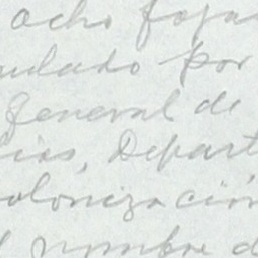 ocho fojas
por
general de
Depart
olonización
nombre d